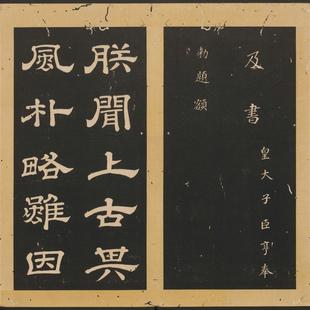 及書
皇大子臣亨奉
勅題額
朕聞上古其
風朴略雖因